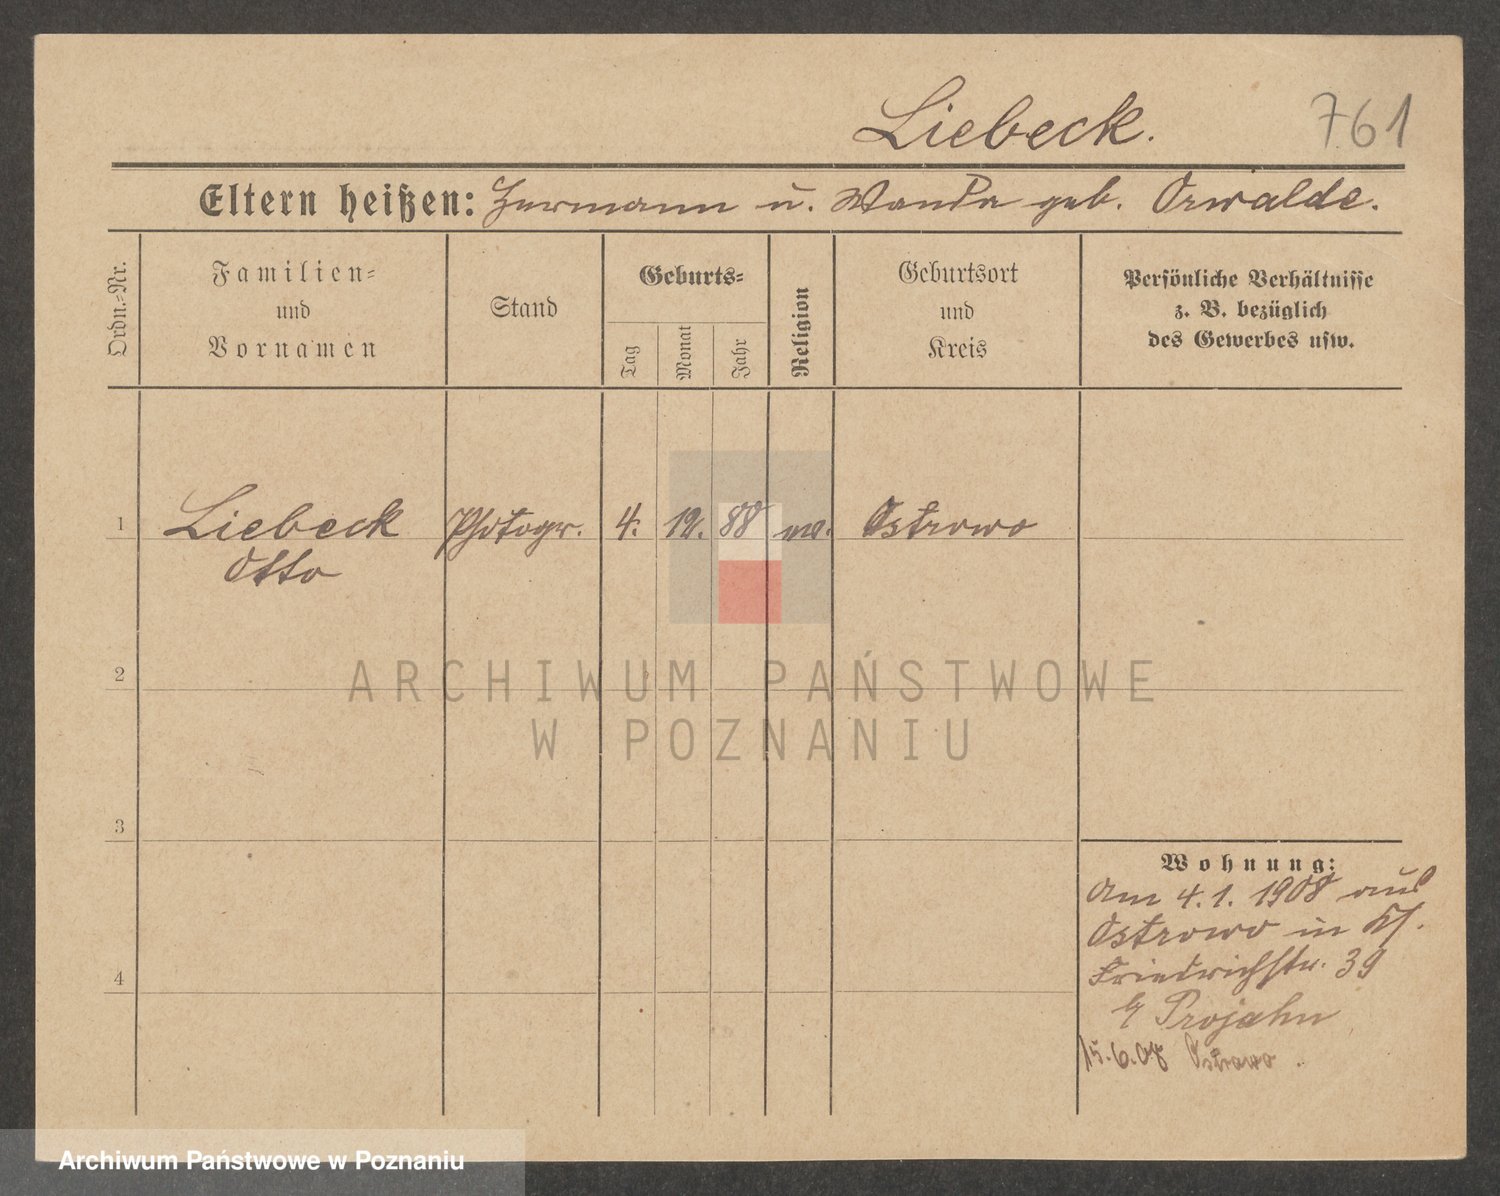 Liebeck. 761
Eltern heißen: Hermann u. Wanda geb. Oswalde.
Ordn.=Nr.
Familien=
und
Vornamen
Stand
Geburts=
Tag
Monat
Jahr
Religion
Geburtsort
und
Kreis
Persönliche Verhältnisse
z. B. bezüglich
des Gewerbes usw.
1 Liebeck Photogr. 4. 12. 88 ev. Ostrowo
Otto
2
3
4
Wohnung:
Am 4.1.1908 aus
Ostrowo in
Friedrichstr. 39
b/ Projahn
15.6.08 Ostrowo.
ARCHIWUM PAŃSTWOWE
W POZNANIU
Archiwum Państwowe w Poznaniu